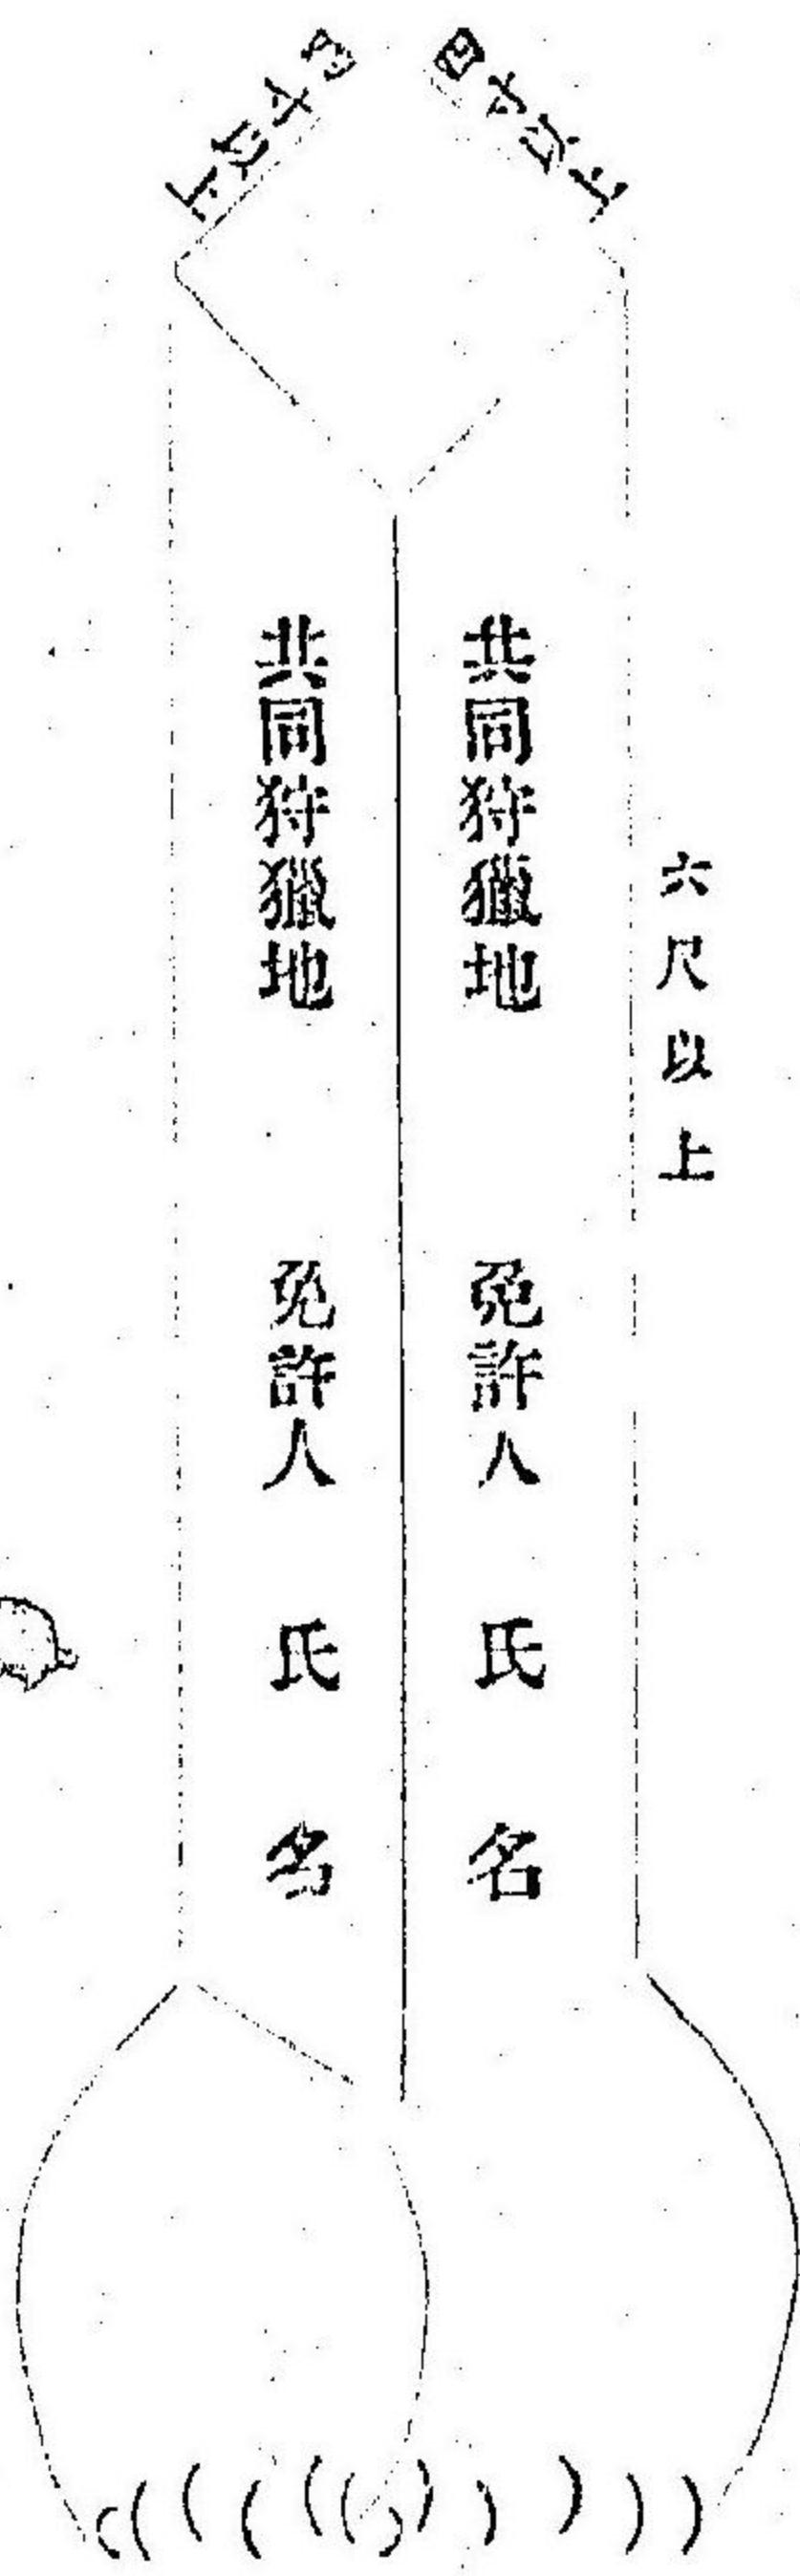 四寸以上
四寸以上
六尺以上
共同狩獵地 免許人 氏名
共同狩獵地 免許人 氏名